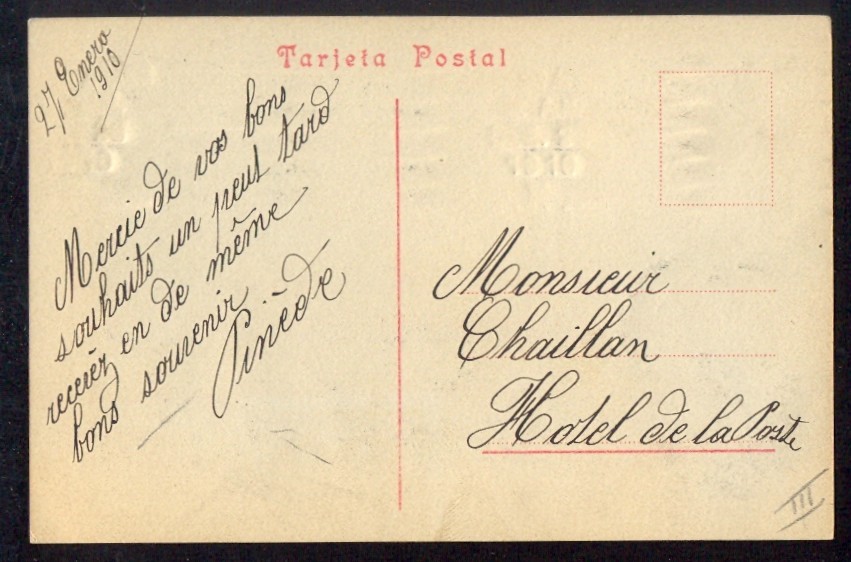 Tarjeta Postal
27 Enero
1910
Mercie de vos bons
souhaits un peut tard
receiéz en de même
bons souvenir
Pinède
Monsieur
Chaillan
Hotel de la Poste
III